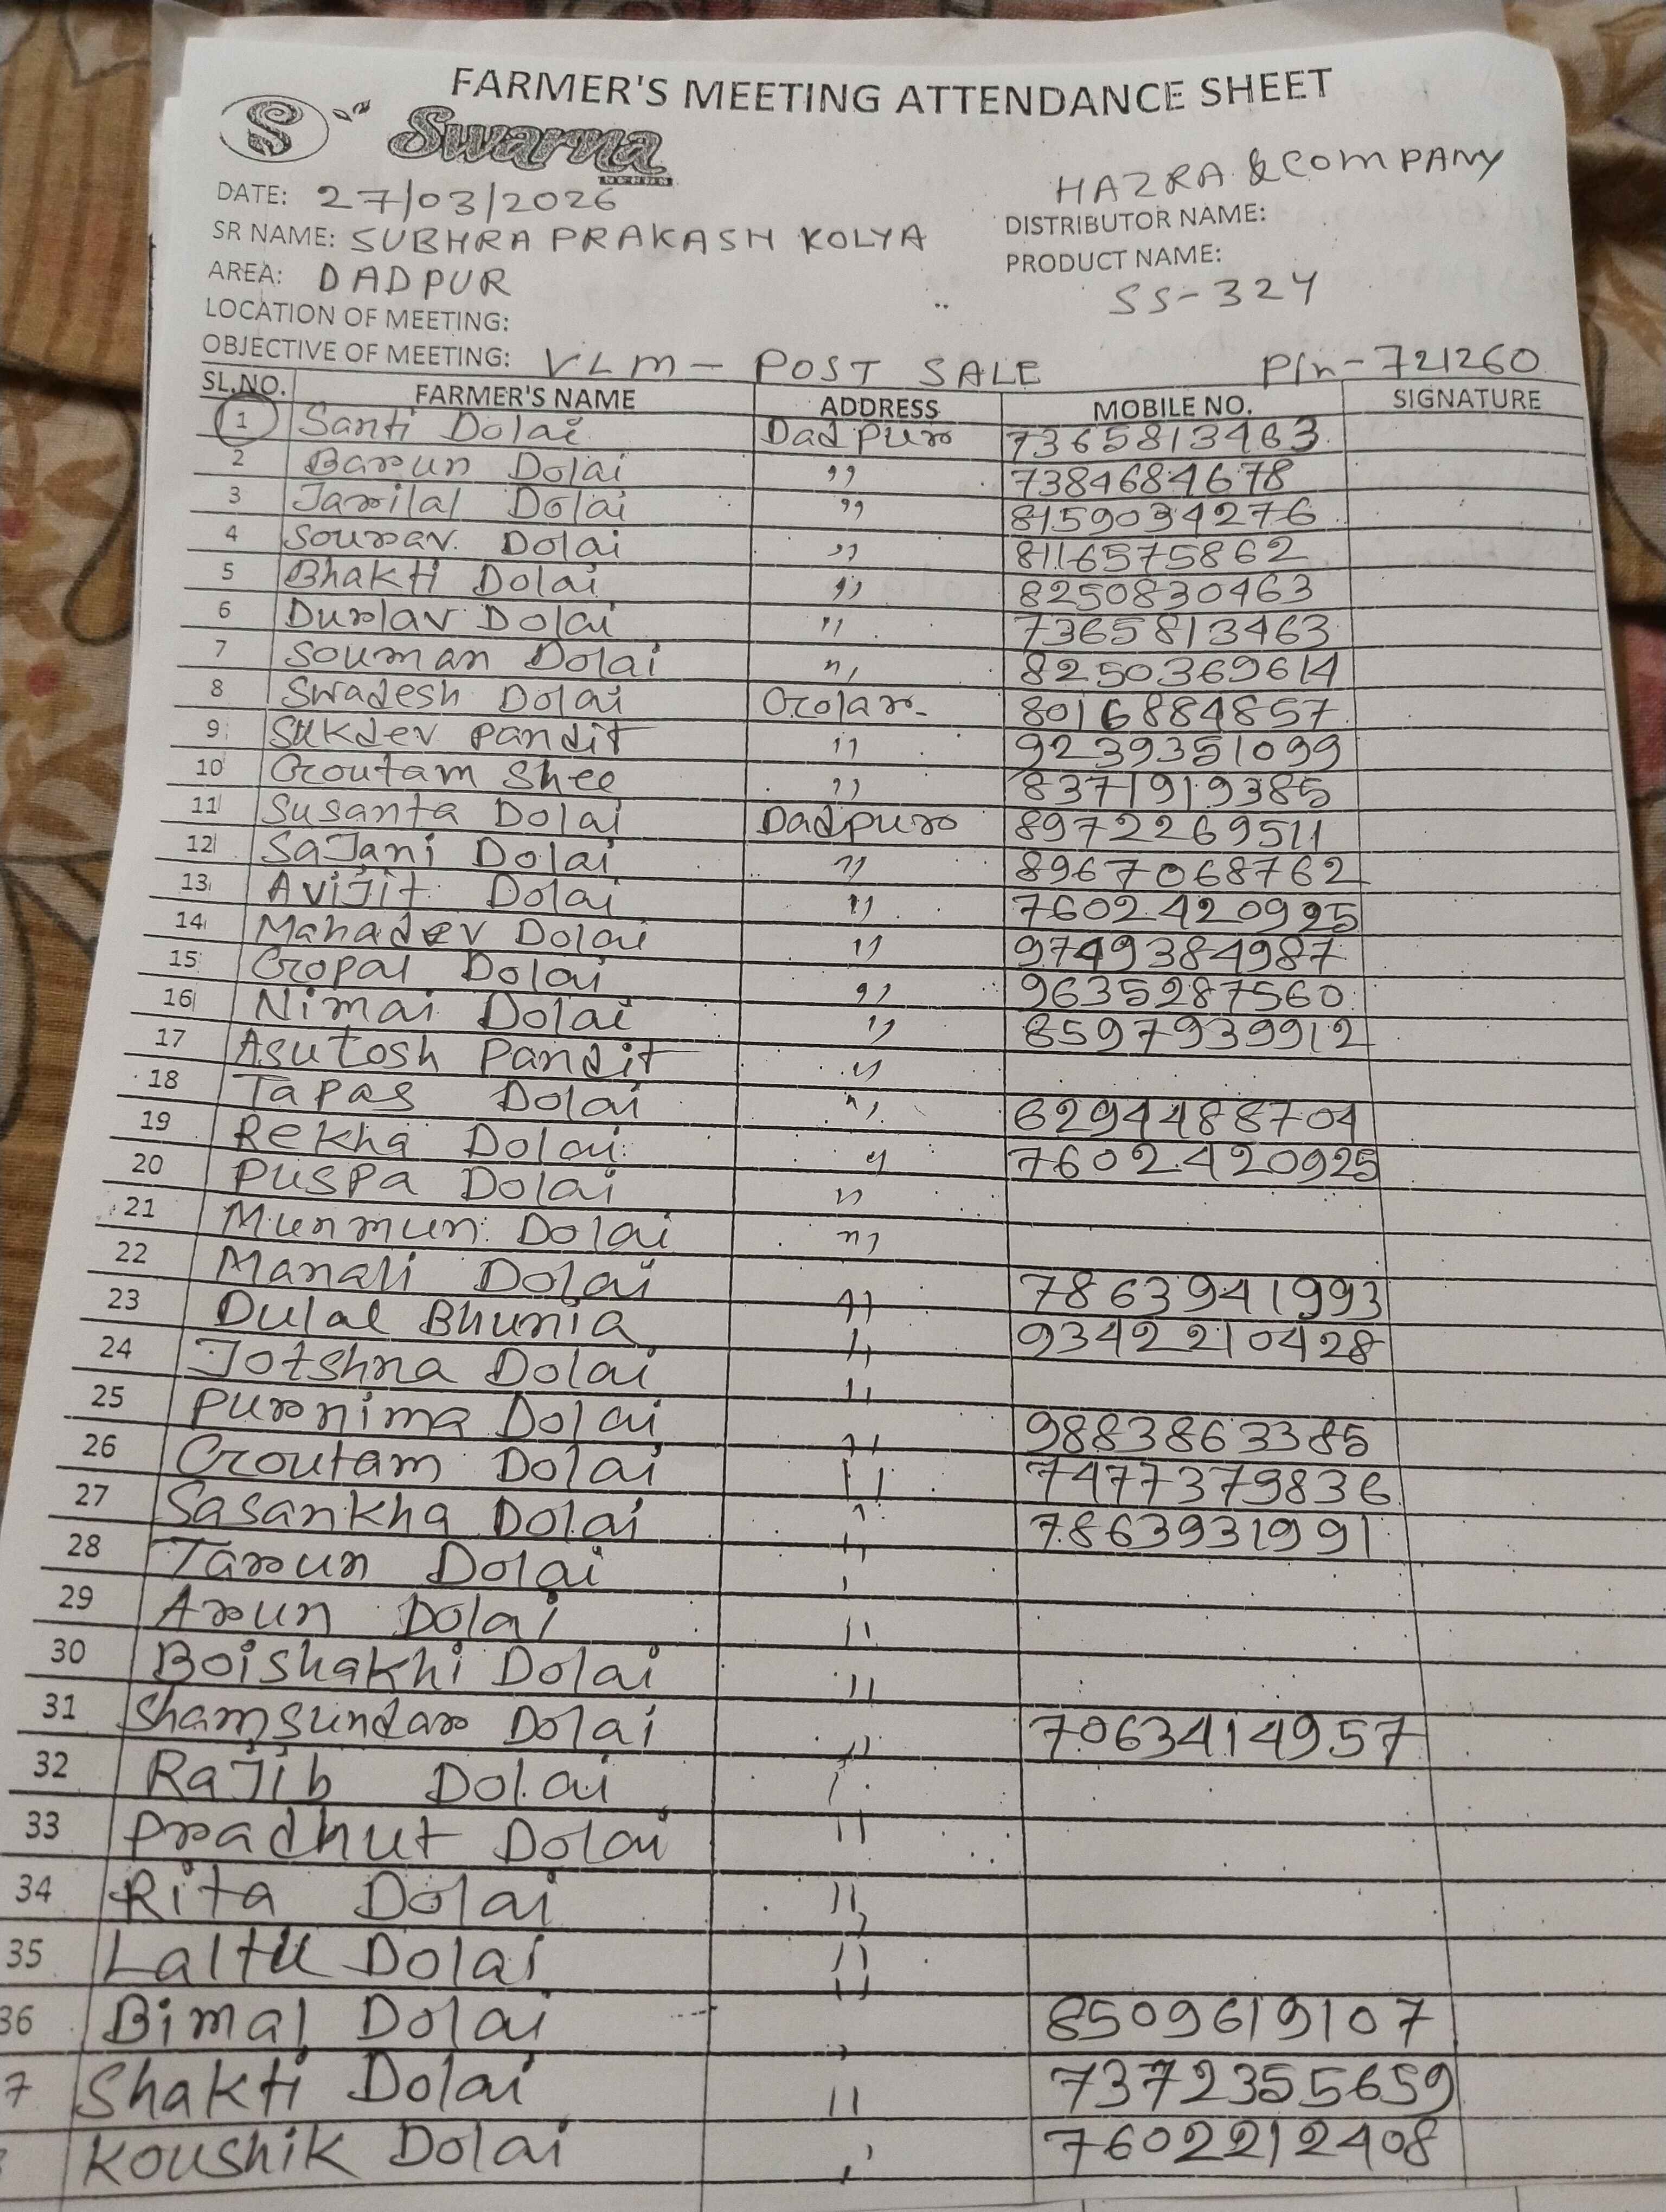 FARMER'S MEETING ATTENDANCE SHEET
S Swarna
HAZRA & COMPANY
DATE: 27/03/2026
DISTRIBUTOR NAME:
SR NAME: SUBHRA PRAKASH KOLYA
PRODUCT NAME:
AREA: DADPUR
SS-324
LOCATION OF MEETING:
OBJECTIVE OF MEETING: VLM - POST SALE Pin-721260
SL.NO. FARMER'S NAME ADDRESS MOBILE NO. SIGNATURE
1 Santi Dolai Dadpur 7365813463
2 Barun Dolai ,, 7384684678
3 Jarilal Dolai ,, 8159034276
4 Sourav Dolai ,, 8116575862
5 Bhakti Dolai ,, 8250830463
6 Durlav Dolai ,, 7365813463
7 Souman Dolai ,, 8250369614
8 Swadesh Dolai Golar 8016884857
9 Sukdev Pandit ,, 9239351099
10 Goutam Shee ,, 8371919385
11 Susanta Dolai Dadpur 8972269511
12 Sajani Dolai ,, 8967068762
13 Avijit Dolai ,, 7602420925
14 Mahadev Dolai ,, 9749384987
15 Gopal Dolai ,, 9635287560
16 Nimai Dolai ,, 8597939912
17 Asutosh Pandit ,,
18 Tapas Dolai ,, 6294488704
19 Rekha Dolai ,, 7602420925
20 Puspa Dolai ,,
21 Munmun Dolai ,,
22 Manali Dolai ,, 7863941993
23 Dulal Bhunia ,, 9342210428
24 Jotshna Dolai ,,
25 Purnima Dolai ,, 9883863385
26 Goutam Dolai ,, 7477379836
27 Sasankha Dolai ,, 7863931991
28 Tarun Dolai ,
29 Arun Dolai ,,
30 Boishakhi Dolai ,,
31 Shamsundar Dolai ,, 7063414957
32 Rajib Dolai ,
33 Pradhut Dolai ,,
34 Rita Dolai ,,
35 Laltu Dolai ,,
36 Bimal Dolai ,, 8509619107
7 Shakti Dolai ,, 7372355659
Koushik Dolai ,, 7602212408